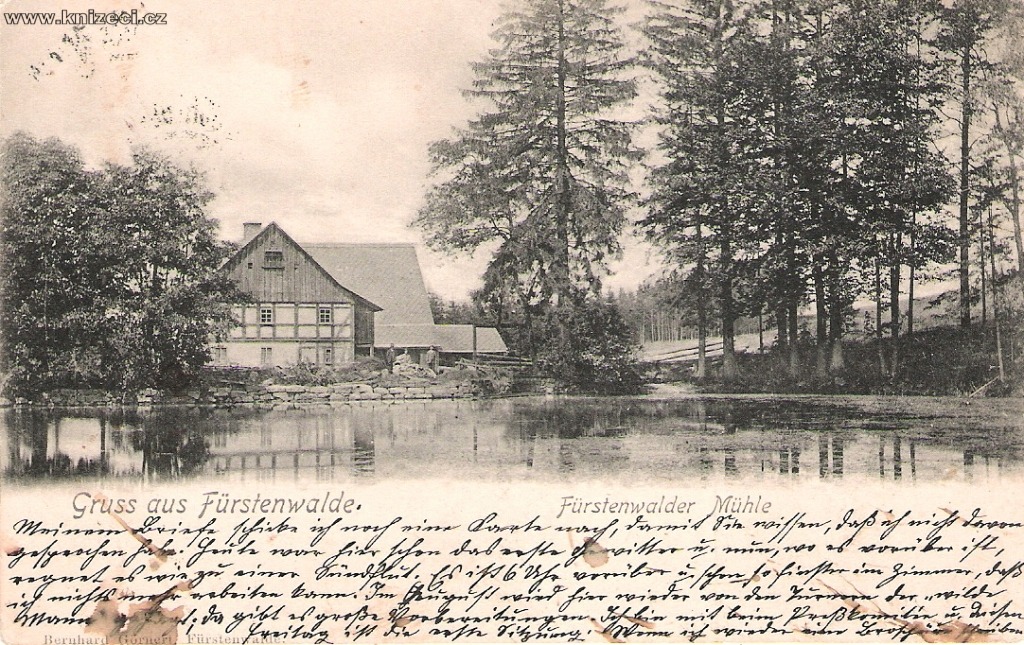 www.knizeci.cz
Gruss aus Fürstenwalde.
Fürstenwalder Mühle
Meinem Briefe schicke ich noch eine Karte nach, damit Sie wissen, daß ich nicht davon
gesprochen habe. Heute war hier schon das erste Gewitter u. nun, wo es vorüber ist,
regnet es wie zu einer Sündflut. Es ist 6 Uhr vorüber u. schon so finster im Zimmer, daß
ich nichts mehr arbeiten kann. Im August wird hier wieder von den Turnern der "wilde
Mann" , da gibt es große Vorbereitungen. Ich bin mit beim Preßkomitee u. diesen
Freitag ist die erste Sitzung. Wenn ich wieder eine
Bernhard Görnert, Fürstenwalde.